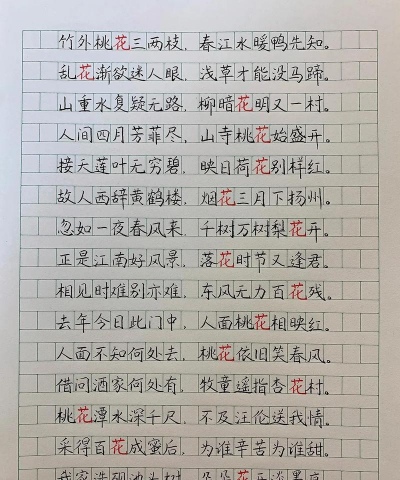 竹外桃花三两枝，春江水暖鸭先知。
乱花渐欲迷人眼，浅草才能没马蹄。
山重水复疑无路，柳暗花明又一村。
人间四月芳菲尽，山寺桃花始盛开。
接天莲叶无穷碧，映日荷花别样红。
故人西辞黄鹤楼，烟花三月下扬州。
忽如一夜春风来，千树万树梨花开。
正是江南好风景，落花时节又逢君。
相见时难别亦难，东风无力百花残。
去年今日此门中，人面桃花相映红。
人面不知何处去，桃花依旧笑春风。
借问酒家何处有，牧童遥指杏花村。
桃花潭水深千尺，不及汪伦送我情。
采得百花成蜜后，为谁辛苦为谁甜。
我家洗砚池头树，朵朵花开淡墨痕